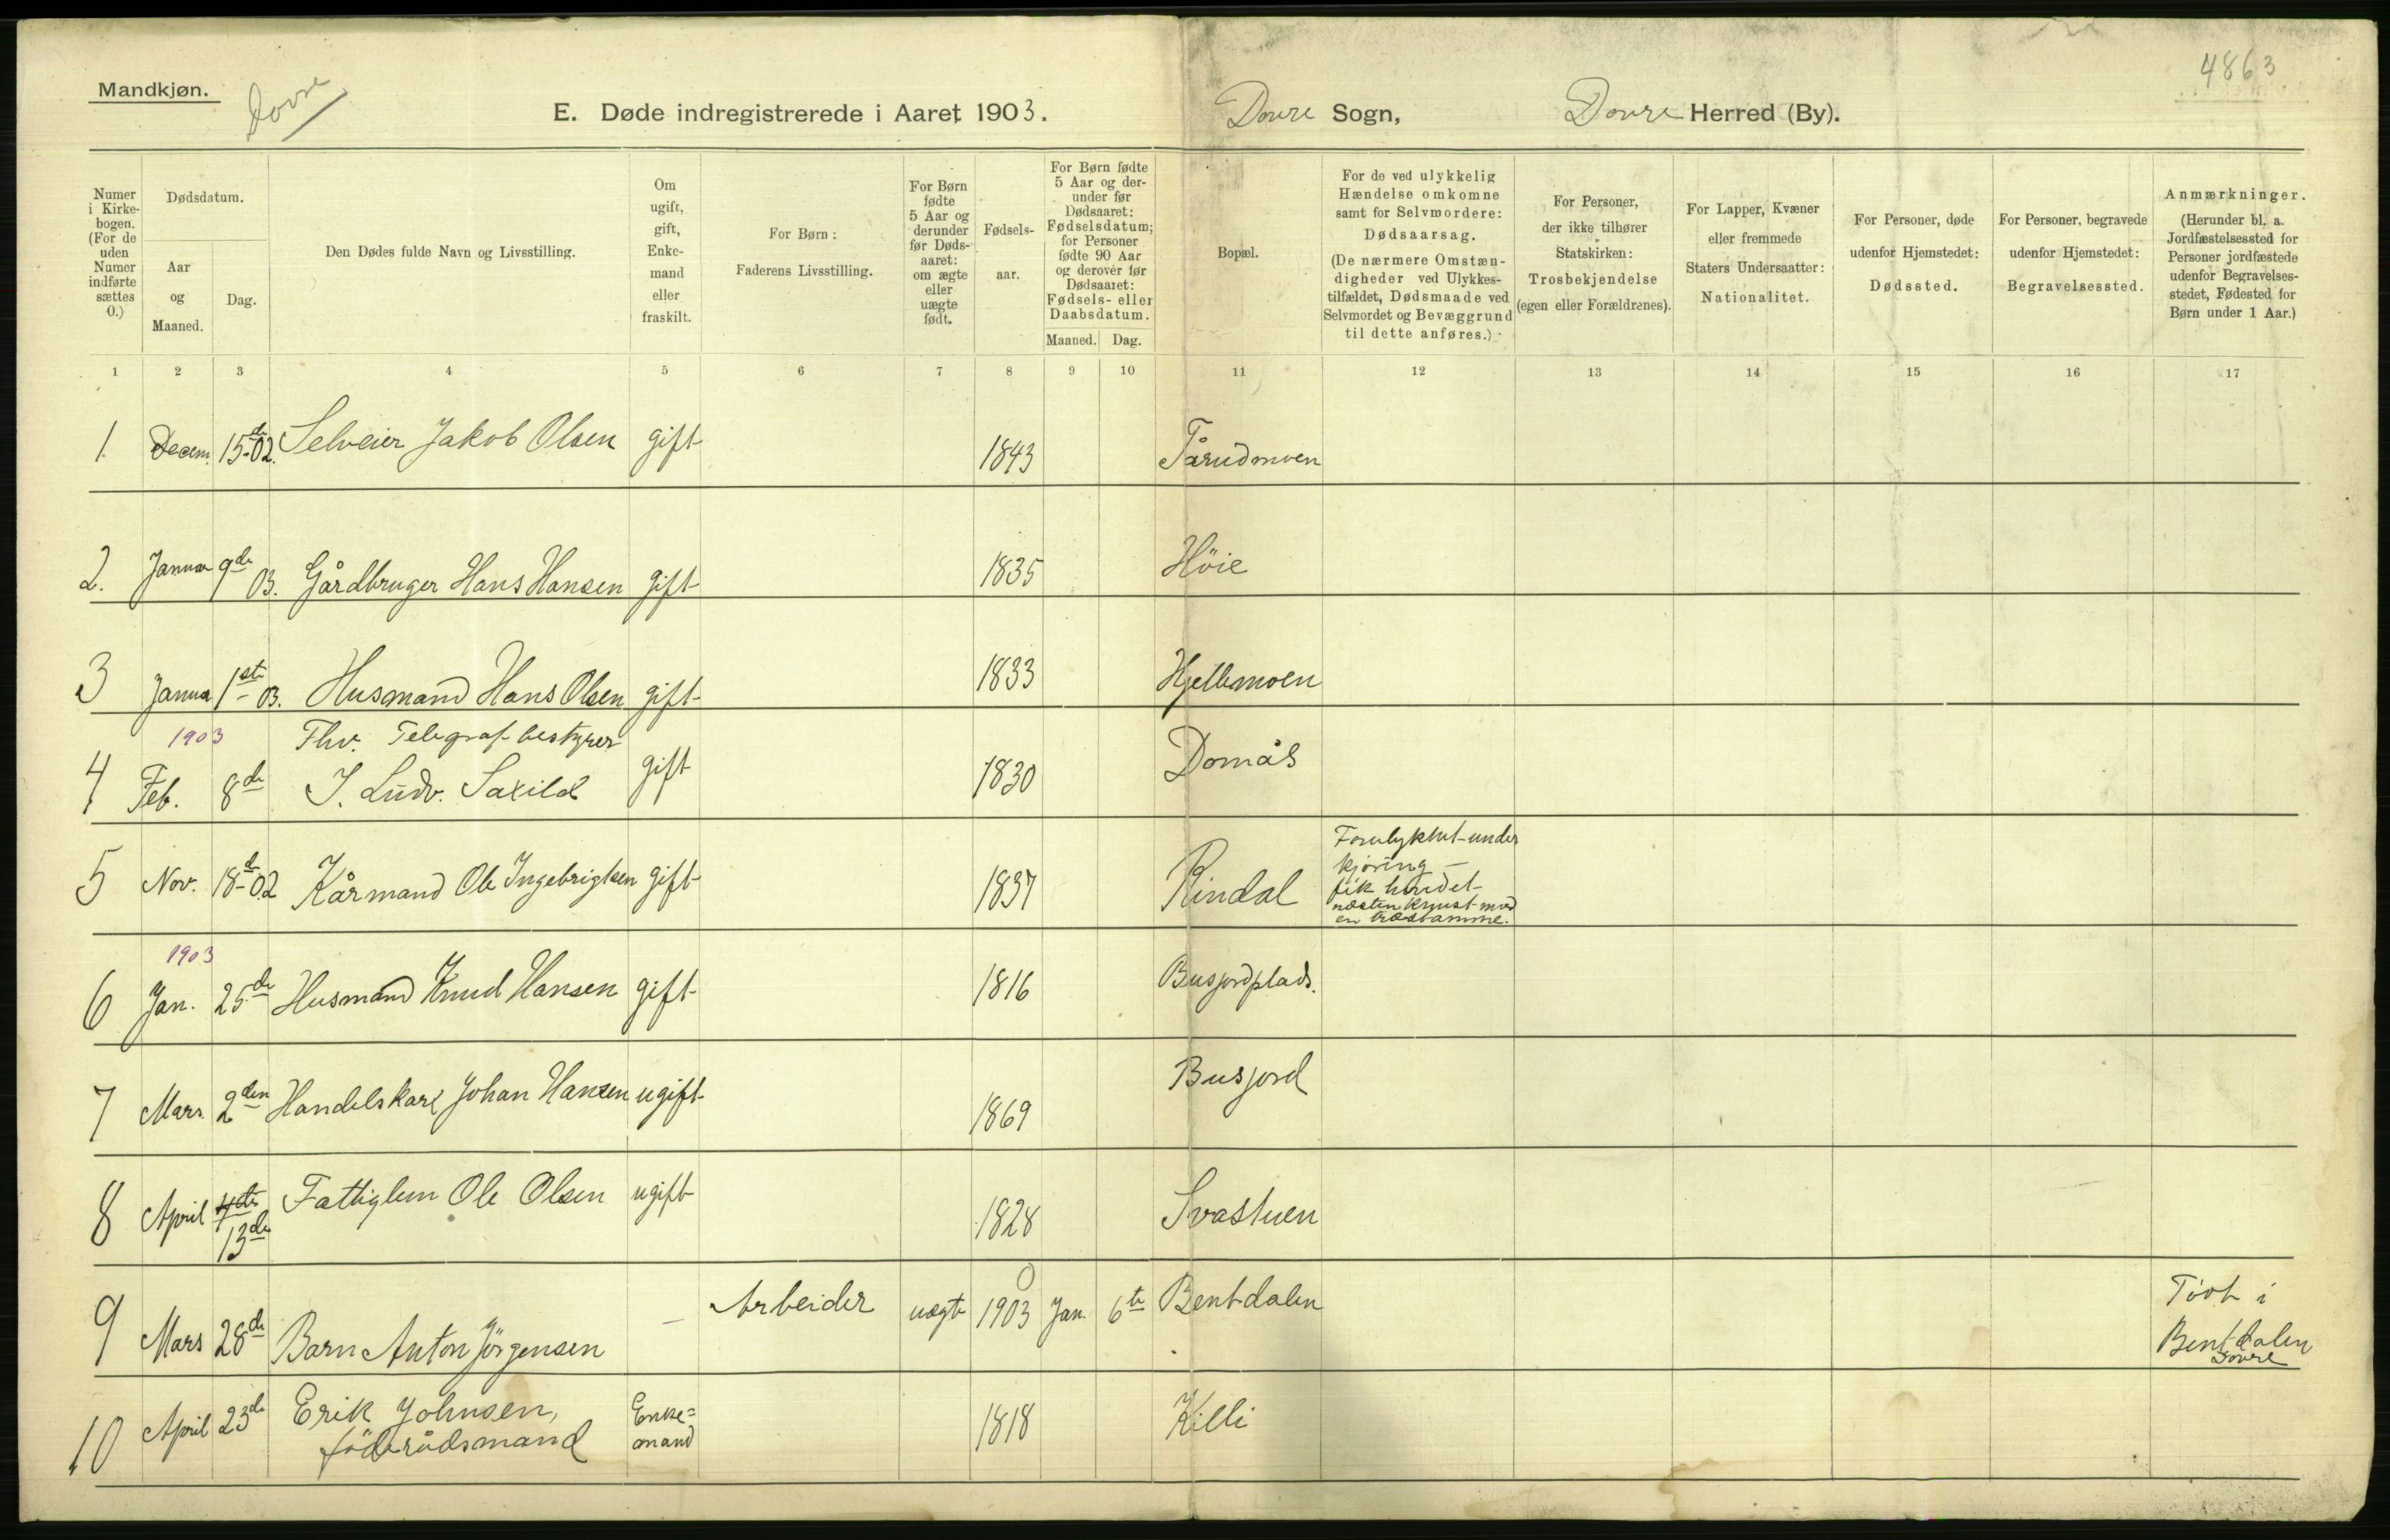 Mandkjøn.
Dovre
4863
E. Døde indregistrerede i Aaret 1903. Dovre Sogn, Dovre Herred (By).
Numer i Kirke-bogen. (For de uden Numer indførte sættes 0.)
Dødsdatum.
Aar og Maaned.
Dag.
Den Dødes fulde Navn og Livsstilling.
Om ugift, gift, Enke-mand eller fraskilt.
For Børn: Faderens Livsstilling.
For Børn fødte 5 Aar og derunder før Døds-aaret: om ægte eller uægte født.
Fødsels-aar.
For Børn fødte 5 Aar og der-under før Dødsaaret: Fødselsdatum; for Personer fødte 90 Aar og derover før Dødsaaret: Fødsels- eller Daabsdatum.
Maaned. Dag.
Bopæl.
For de ved ulykkelig Hændelse omkomne samt for Selvmordere: Dødsaarsag. (De nærmere Omstæn-digheder ved Ulykkes-tilfældet, Dødsmaade ved Selvmordet og Bevæggrund til dette anføres.)
For Personer, der ikke tilhører Statskirken: Trosbekjendelse (egen eller Forældrenes).
For Lapper, Kvæner eller fremmede Staters Undersaatter: Nationalitet.
For Personer, døde udenfor Hjemstedet: Dødssted.
For Personer, begravede udenfor Hjemstedet: Begravelsessted.
Anmærkninger. (Herunder bl. a. Jordfæstelsessted for Personer jordfæstede udenfor Begravelses-stedet, Fødested for Børn under 1 Aar.)
1 2 3 4 5 6 7 8 9 10 11 12 13 14 15 16 17
1. Decem. 15de 02. Selveier Jakob Olsen gift 1843 Tårudmoen
2. Januar 9de 03. Gårdbruger Hans Hansen gift 1835 Höie
3 Janua 1ste 03. Husmand Hans Olsen gift 1833 Hjellemoen
1903 Fhv. Telegrafbestyrer
4 Feb. 8de J. Ludv. Saxild gift 1830 Domås
5 Nov. 18de 02 Kårmand Ole Ingebrigtsen gift 1837 Rindal
Forulykket under
kjøring —
fik hovdet
næsten knust mod
en trædstamme.
1903
6 Jan. 25de Husmand Knud Hansen gift 1816 Busjordplads.
7 Mars 2den Handelskarl Johan Hansen ugift 1869 Busjord
8 April 4de 13de Fattiglem Ole Olsen ugift 1828 Svastuen
9 Mars 28de Barn Anton Jörgensen — Arbeider uægte 0 1903 Jan. 6te Bentdalen
Födt i
Bentdalen
Dovre
10 April 23de Erik Johnsen, Enke=
föderådsmand mand 1818 Killi